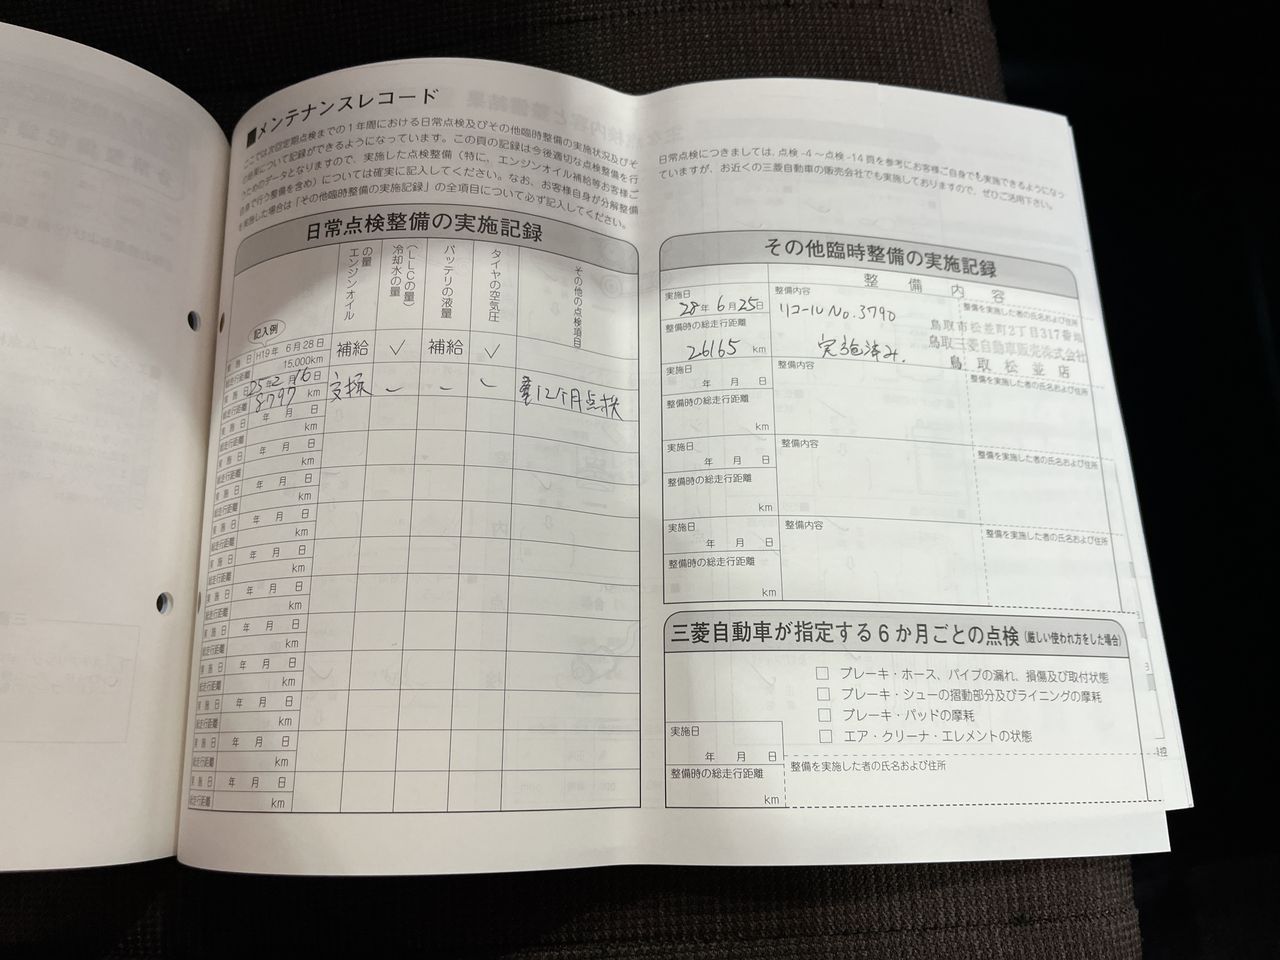 ■メンテナンスレコード
ここでは次回定期点検までの1年間における日常点検及びその他臨時整備の実施状況及びそ
の結果について記録ができるようになっています。この頁の記録は今後適切な点検整備を行
うためのデータとなりますので、実施した点検整備（特に、エンジンオイル補給等お客様ご
自身で行う整備を含め）については確実に記入してください。なお、お客様自身が分解整備
を実施した場合は「その他臨時整備の実施記録」の全項目について必ず記入してください。
日常点検整備の実施記録
エンジンオイルの量
冷却水の量（LLCの量）
バッテリの液量
タイヤの空気圧
その他の点検項目
記入例
実施日 H19年 6月28日
総走行距離 15,000km
補給 ✓ 補給 ✓
実施日 25年2月16日
総走行距離 8797 km
交換 12ヶ月点検
実施日 年 月 日
総走行距離 km
実施日 年 月 日
総走行距離 km
実施日 年 月 日
総走行距離 km
実施日 年 月 日
総走行距離 km
実施日 年 月 日
総走行距離 km
実施日 年 月 日
総走行距離 km
実施日 年 月 日
総走行距離 km
実施日 年 月 日
総走行距離 km
実施日 年 月 日
総走行距離 km
実施日 年 月 日
総走行距離 km
実施日 年 月 日
総走行距離 km
日常点検につきましては、点検-4～点検-14頁を参考にお客様ご自身でも実施できるようになっ
ていますが、お近くの三菱自動車の販売会社でも実施しておりますので、ぜひご活用下さい。
その他臨時整備の実施記録
整備内容
実施日
28年 6月25日
整備時の総走行距離
26165 km
整備内容
リコールNo.3790
実施済み.
整備を実施した者の氏名および住所
鳥取市松並町2丁目317番地
鳥取三菱自動車販売株式会社
鳥取松並店
実施日
年 月 日
整備時の総走行距離
km
整備内容
整備を実施した者の氏名および住所
実施日
年 月 日
整備時の総走行距離
km
整備内容
整備を実施した者の氏名および住所
実施日
年 月 日
整備時の総走行距離
km
整備内容
整備を実施した者の氏名および住所
三菱自動車が指定する6か月ごとの点検（厳しい使われ方をした場合）
□ ブレーキ・ホース、パイプの漏れ、損傷及び取付状態
□ ブレーキ・シューの摺動部分及びライニングの摩耗
□ ブレーキ・パッドの摩耗
□ エア・クリーナ・エレメントの状態
実施日
年 月 日
整備時の総走行距離
km
整備を実施した者の氏名および住所